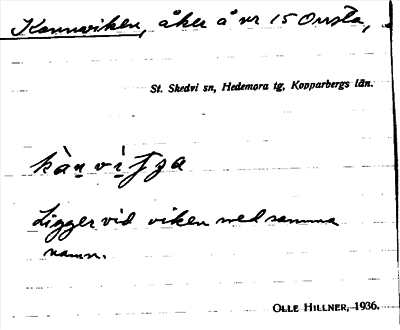 Kannviken, åker å nr 15 Onsta,
St. Skedvi sn, Hedemora tg, Kopparbergs län.
Ligger vid viken med samma
namn.
OLLE HILLNER, 1936.